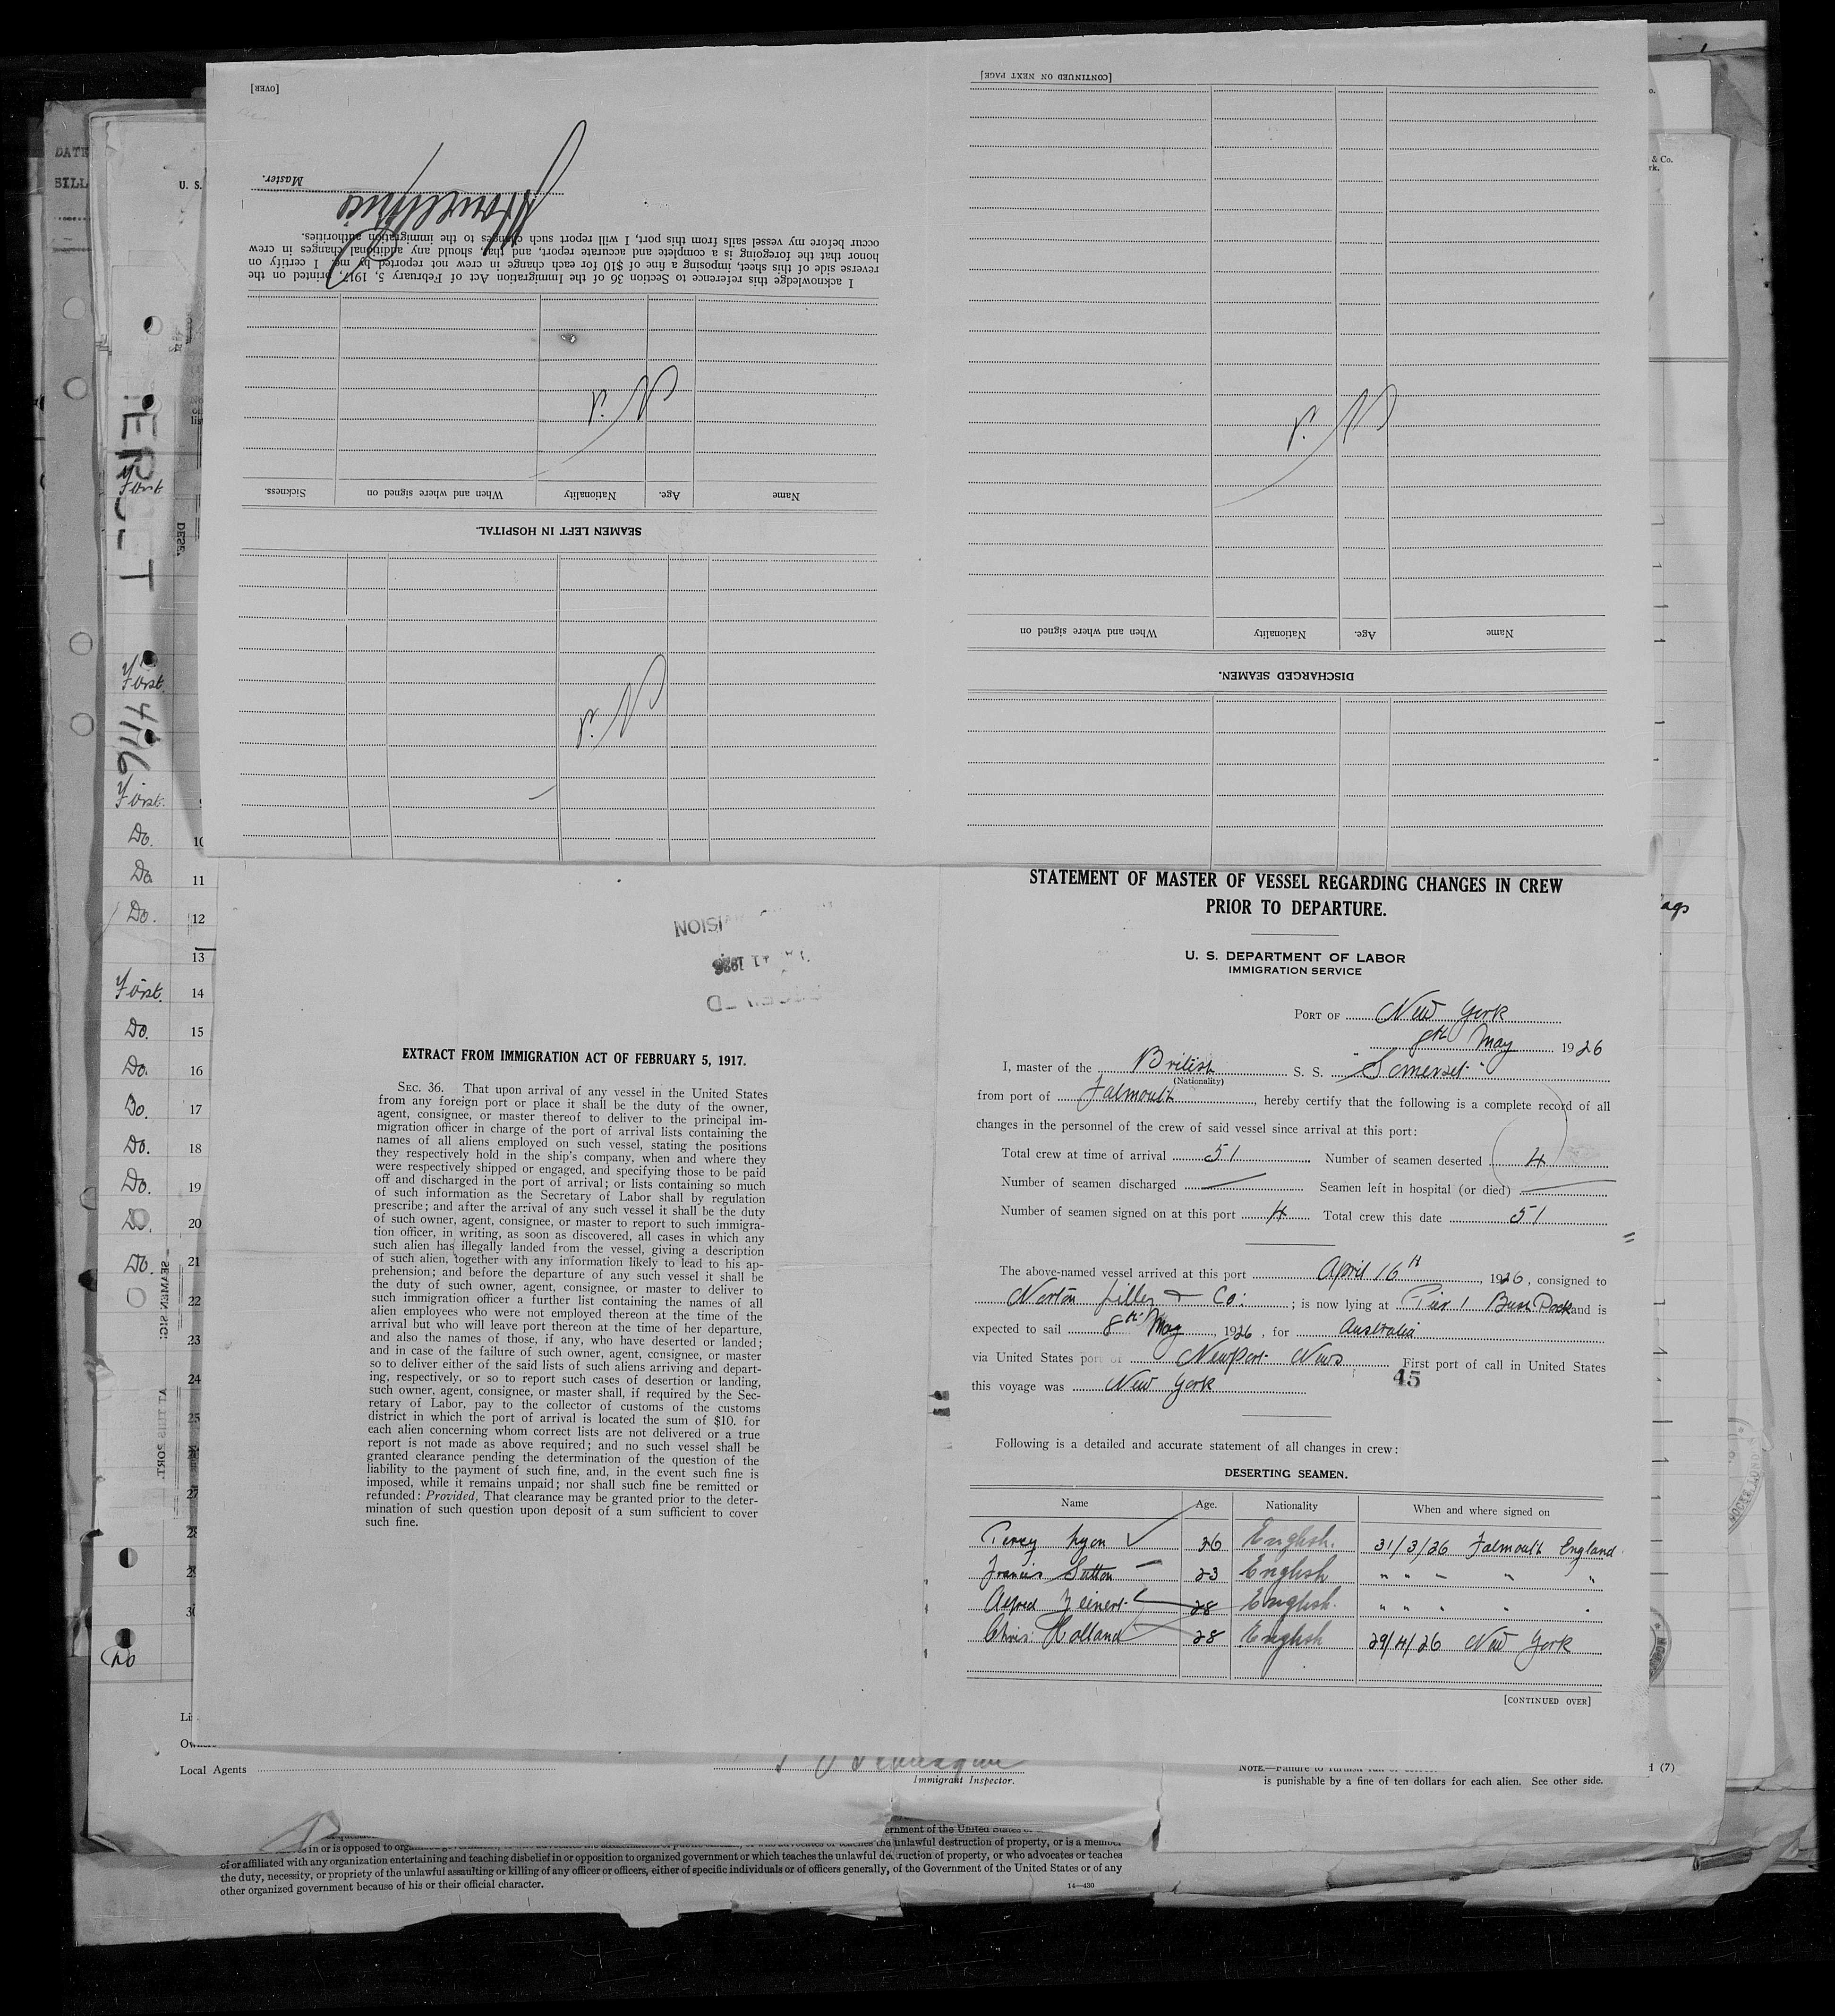 [OVER]
Master.
I acknowledge this reference to Section 36 of the Immigration Act of February 5, 1917, printed on the
reverse side of this sheet, imposing a fine of $10 for each change in crew not reported by me. I certify on
honor that the foregoing is a complete and accurate report, and that, should any additional changes in crew
occur before my vessel sails from this port, I will report such changes to the immigration authorities.
Nil
Name Age. Nationality When and where signed on Sickness.
SEAMEN LEFT IN HOSPITAL.
Nil
[CONTINUED ON NEXT PAGE]
Nil
Name Age. Nationality When and where signed on
DISCHARGED SEAMEN.
DATE
BILL
U. S.
ERSET
4116
First
DESE.
First.
First.
Do. 10
Do. 11
Do. 12
13
First. 14
Do. 15
Do. 16
Do. 17
Do. 18
Do. 19
Do. 20
Do. 21
22
23
24
25
27
28
30
Do
SEAMEN SIG
AT THIS PORT.
& Co.
EXTRACT FROM IMMIGRATION ACT OF FEBRUARY 5, 1917.
SEC. 36. That upon arrival of any vessel in the United States
from any foreign port or place it shall be the duty of the owner,
agent, consignee, or master thereof to deliver to the principal im-
migration officer in charge of the port of arrival lists containing the
names of all aliens employed on such vessel, stating the positions
they respectively hold in the ship's company, when and where they
were respectively shipped or engaged, and specifying those to be paid
off and discharged in the port of arrival; or lists containing so much
of such information as the Secretary of Labor shall by regulation
prescribe; and after the arrival of any such vessel it shall be the duty
of such owner, agent, consignee, or master to report to such immigra-
tion officer, in writing, as soon as discovered, all cases in which any
such alien has illegally landed from the vessel, giving a description
of such alien, together with any information likely to lead to his ap-
prehension; and before the departure of any such vessel it shall be
the duty of such owner, agent, consignee, or master to deliver to
such immigration officer a further list containing the names of all
alien employees who were not employed thereon at the time of the
arrival but who will leave port thereon at the time of her departure,
and also the names of those, if any, who have deserted or landed;
and in case of the failure of such owner, agent, consignee, or master
so to deliver either of the said lists of such aliens arriving and depart-
ing, respectively, or so to report such cases of desertion or landing,
such owner, agent, consignee, or master shall, if required by the Sec-
retary of Labor, pay to the collector of customs of the customs
district in which the port of arrival is located the sum of $10. for
each alien concerning whom correct lists are not delivered or a true
report is not made as above required; and no such vessel shall be
granted clearance pending the determination of the question of the
liability to the payment of such fine, and, in the event such fine is
imposed, while it remains unpaid; nor shall such fine be remitted or
refunded: Provided, That clearance may be granted prior to the deter-
mination of such question upon deposit of a sum sufficient to cover
such fine.
STATEMENT OF MASTER OF VESSEL REGARDING CHANGES IN CREW
PRIOR TO DEPARTURE.
U. S. DEPARTMENT OF LABOR
IMMIGRATION SERVICE
PORT OF New York
8th May 1926
I, master of the British S. S. "Somerset"
(Nationality)
from port of Falmouth, hereby certify that the following is a complete record of all
changes in the personnel of the crew of said vessel since arrival at this port:
Total crew at time of arrival 51 Number of seamen deserted 4
Number of seamen discharged — Seamen left in hospital (or died) —
Number of seamen signed on at this port 4 Total crew this date 51
The above-named vessel arrived at this port April 16th, 1926, consigned to
Norton Lilley & Co: ; is now lying at Pier 1 Bush Dock and is
expected to sail 8th May, 1926, for Australia
via United States port of Newport News First port of call in United States
this voyage was New York
45
Following is a detailed and accurate statement of all changes in crew:
DESERTING SEAMEN.
Name Age. Nationality When and where signed on
Percy Lyon 26 English. 31/3/26 Falmouth England
Francis Sutton 23 English " " " " "
Alfred 28 English. " " " " "
Chris: Holland 28 English 29/4/26 New York
[CONTINUED OVER]
Local Agents
Immigrant Inspector.
is punishable by a fine of ten dollars for each alien. See other side.
(7)
ernment of the United States
in or is opposed to the unlawful destruction of property, or is a member
of or affiliated with any organization entertaining and teaching disbelief in or opposition to organized government or which teaches the unlawful destruction of property, or who advocates or teaches
the duty, necessity, or propriety of the unlawful assaulting or killing of any officer or officers, either of specific individuals or of officers generally, of the Government of the United States or of any
other organized government because of his or their official character.
14—430